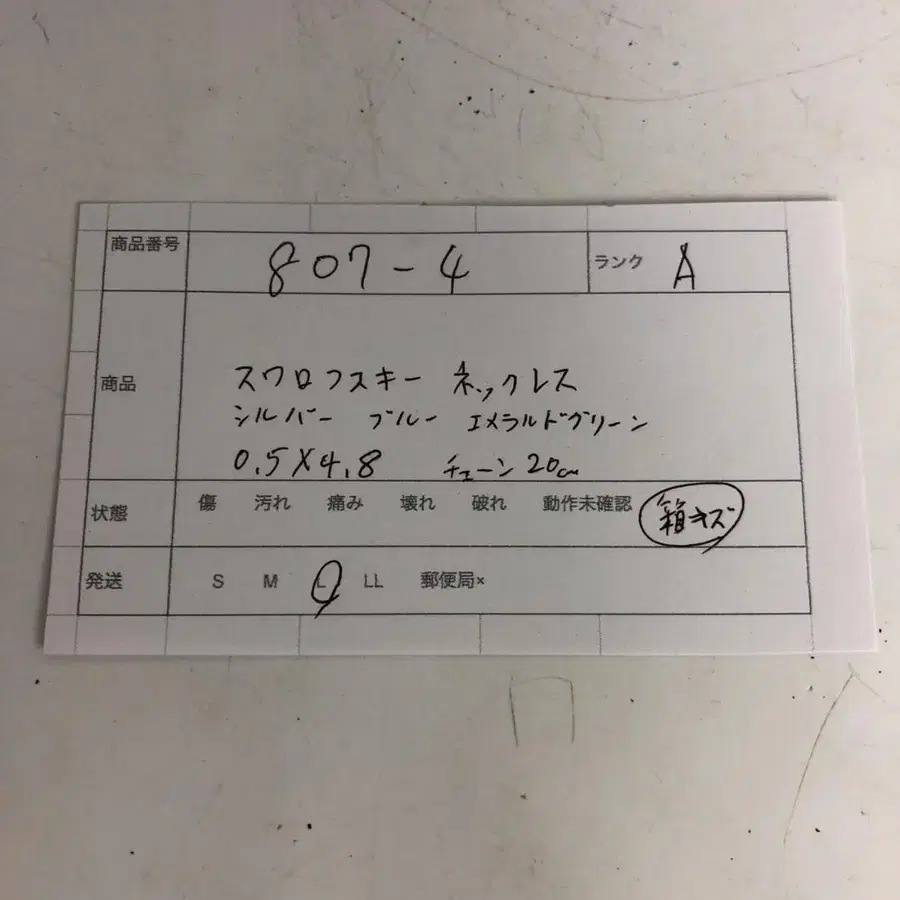 商品番号 807-4 ランク A
商品
スワロフスキー ネックレス
シルバー ブルー エメラルドグリーン
0.5×4.8 チェーン20cm
状態 傷 汚れ 痛み 壊れ 破れ 動作未確認 箱キズ
発送 S M L LL 郵便局×